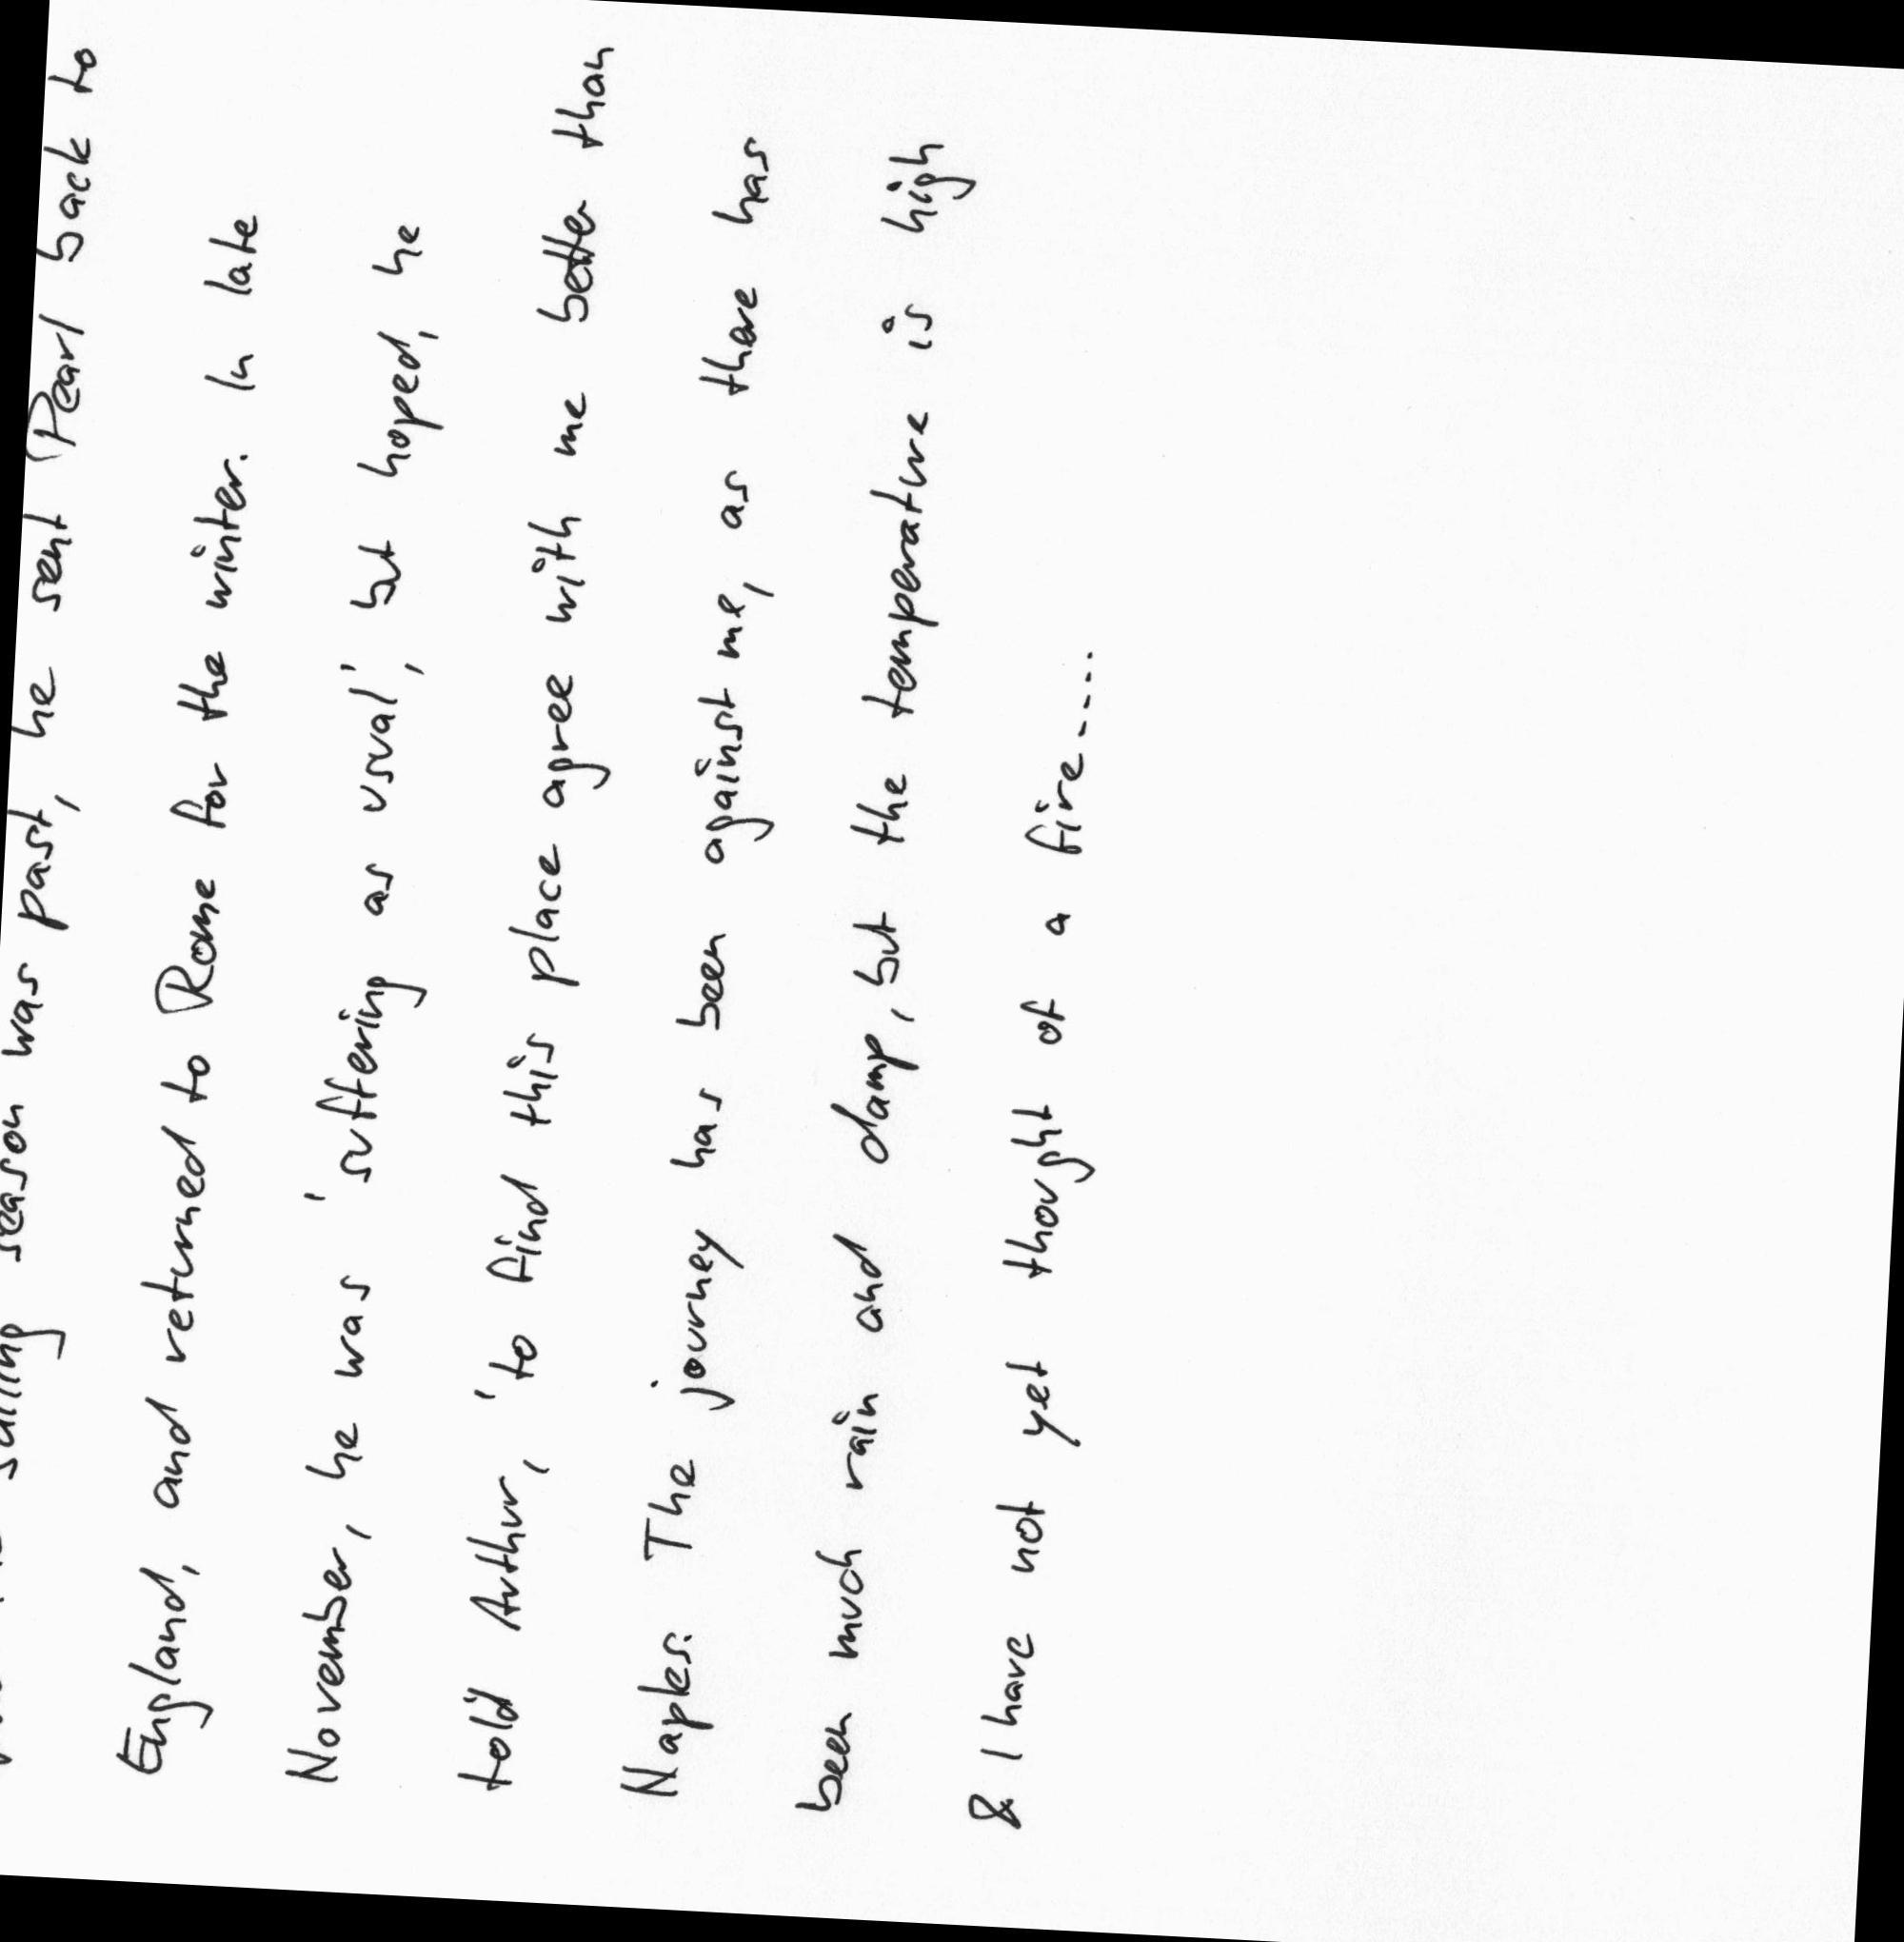 sailing season was past, he sent Pearl back to
England, and returned to Rome for the winter. In late
November, he was 'suffering as usual', but hoped, he
told Arthur, 'to find this place agree with me better than
Naples. The journey has been against me, as there has
been much rain and damp, but the temperature is high
& I have not yet thought of a fire....